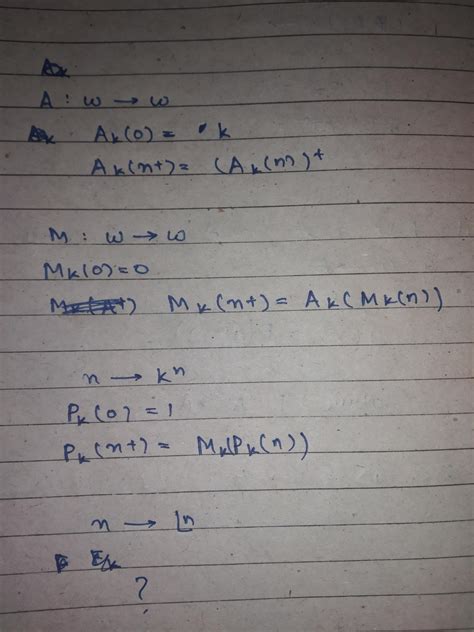 A : ω → ω
Ak(0) = k
Ak(n+) = (Ak(n))+
M : ω → ω
Mk(0) = 0
Mk(n+) = Ak(Mk(n))
n → kn
Pk(0) = 1
Pk(n+) = Mk(Pk(n))
n → ⌊n
?